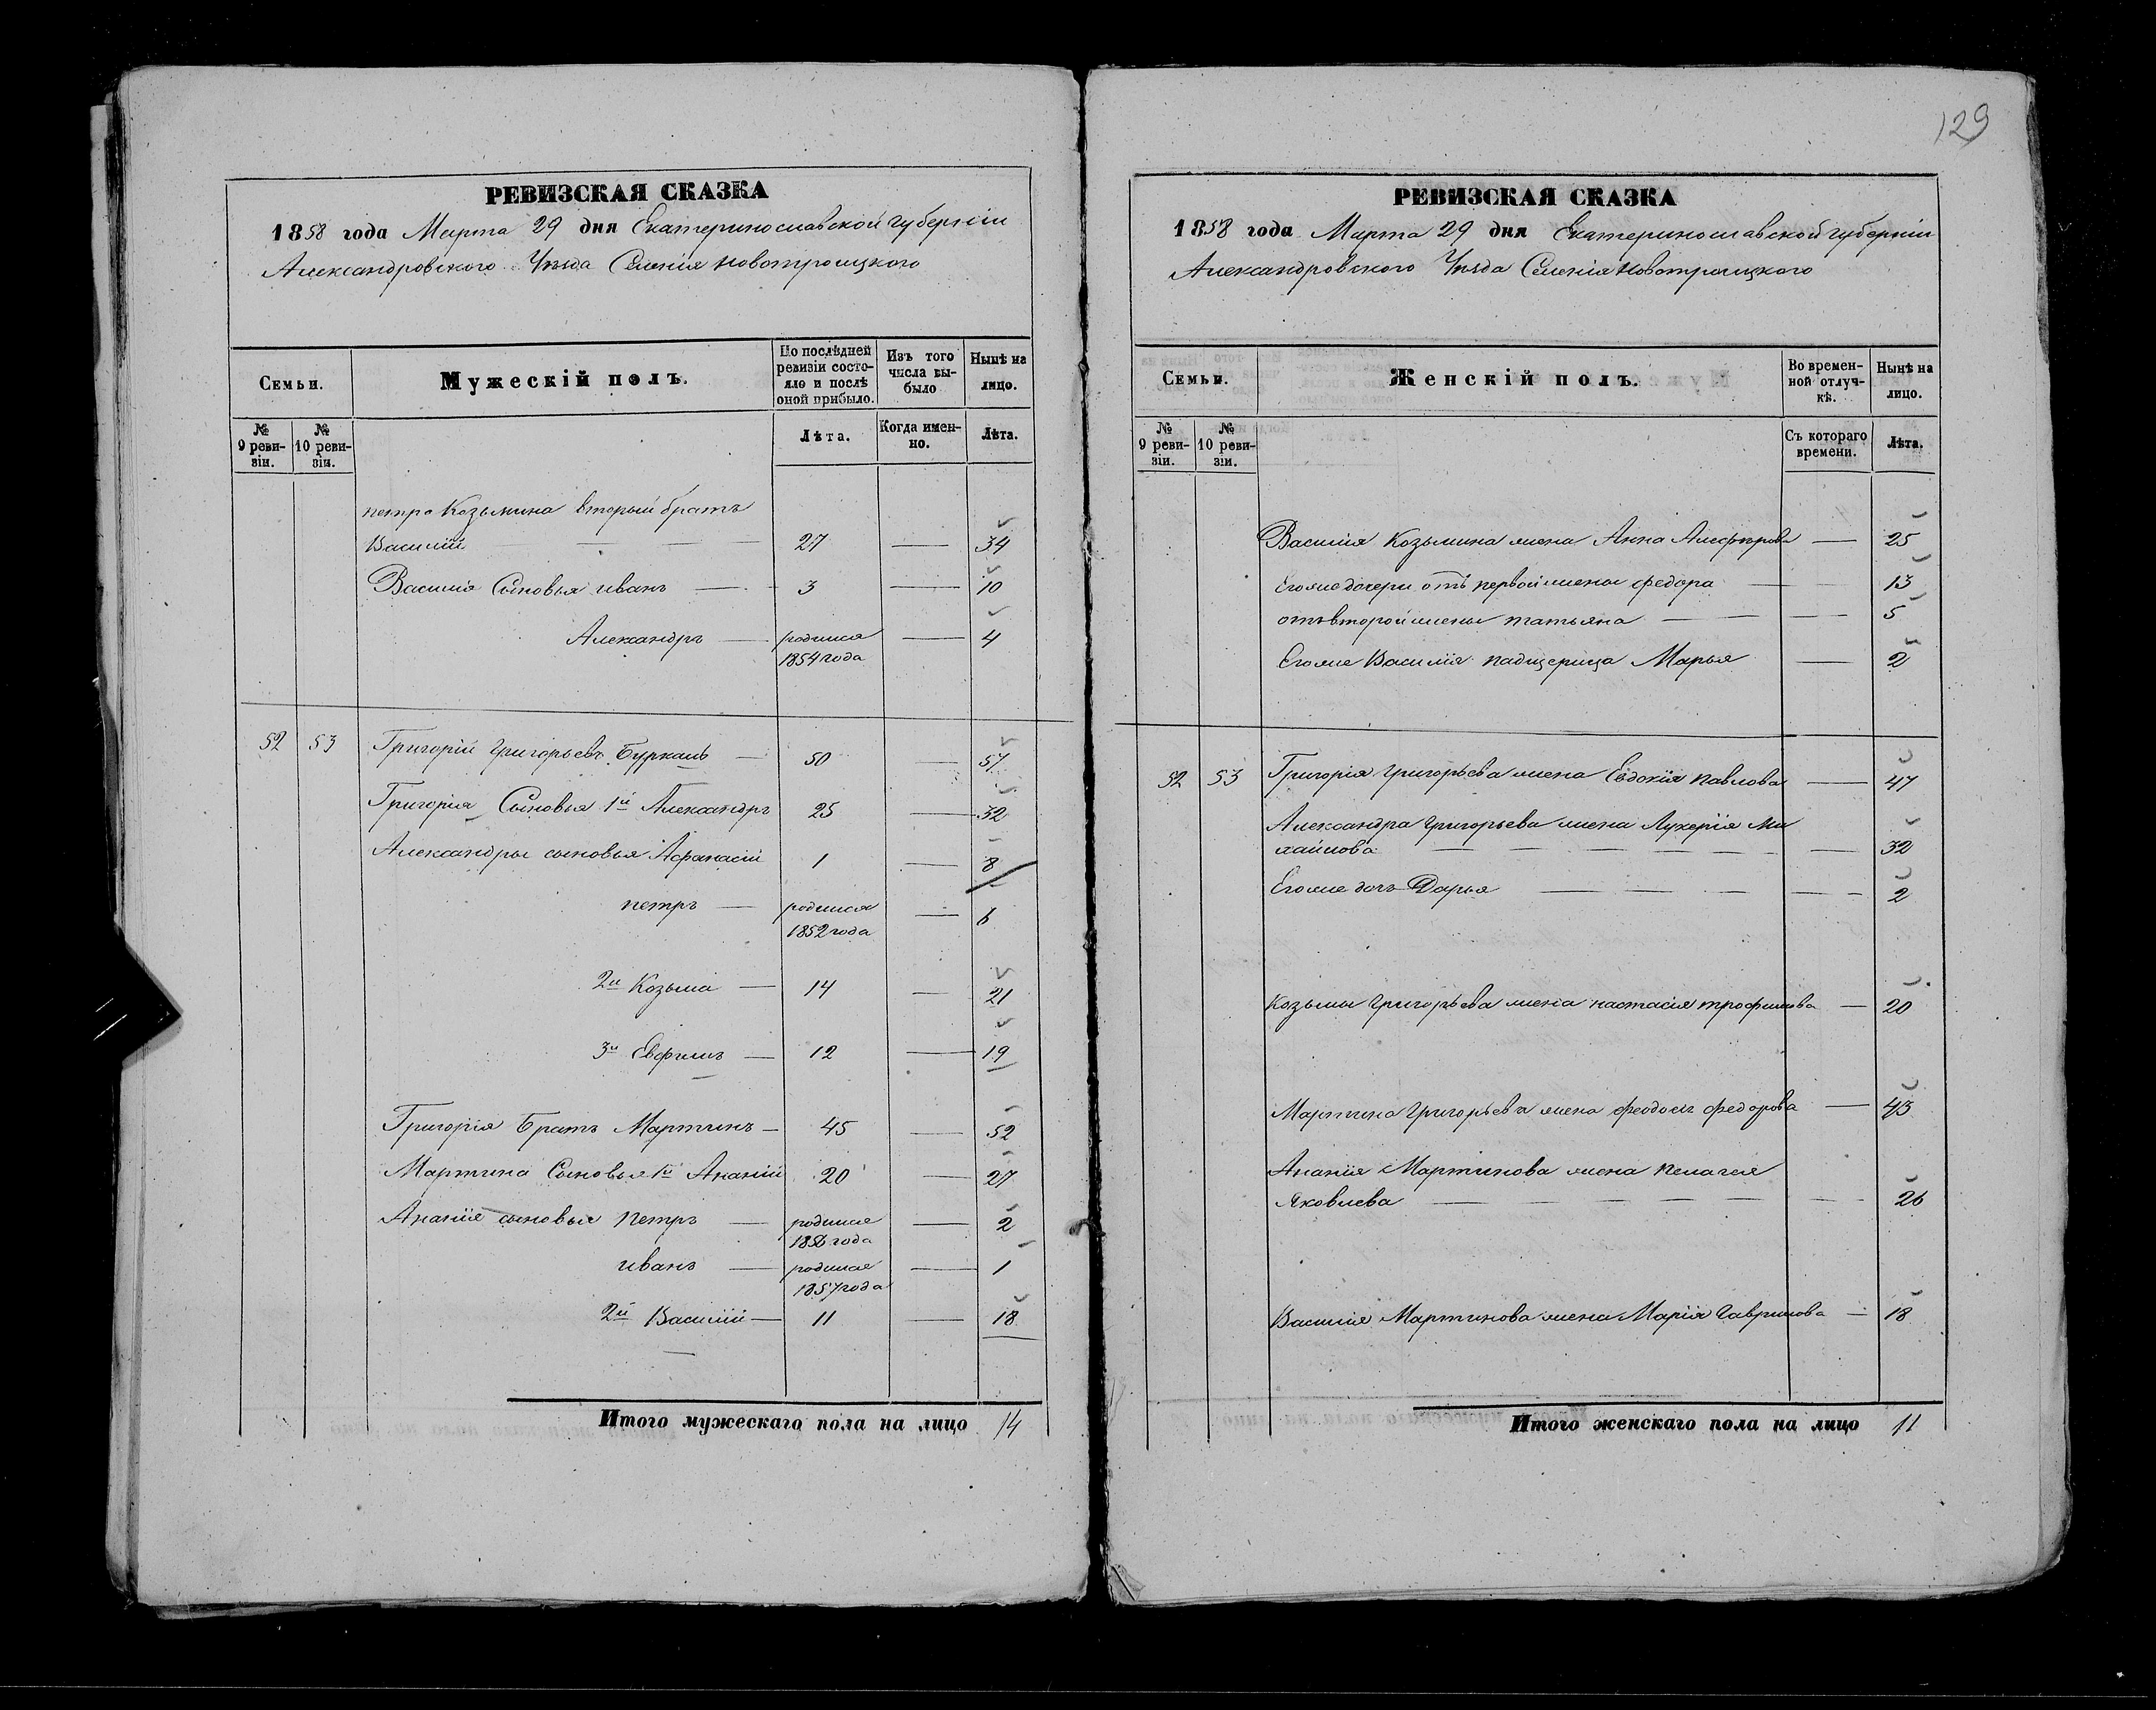 129
РЕВИЗСКАЯ СКАЗКА
1858 года Марта 29 дня Екатеринославской губерніи
Александровского Уѣзда Селенія Новотроицкого
Семьи.
Мужескій полъ.
По послѣдней ревизіи состояло и послѣ оной прибыло.
Изъ того числа выбыло
Нынѣ на лицо.
№ 9 ревизіи.
№ 10 ревизіи.
Лѣта.
Когда именно.
Лѣта.
петра Козьмина вторый братъ
Василій 27 — 34
Василія Сыновья иванъ — 3 — 10
Александръ — родился 1854 года — 4
52 53 Григорій Григорьевъ — 50 — 57
Григорія Сыновья 1й Александръ 25 — 32
Александры сыновья Афанасій 1 — 8
петръ — родился 1852 года — 6
2й Козьма — 14 — 21
3й Евфимъ — 12 — 19
Григорія Братъ Мартинъ — 45 — 52
Мартина Сыновья 1й Ананій 20 — 27
Ананія сыновья петръ — родился 1856 года — 2
иванъ — родился 1857 года — 1
2й Василій — 11 — 18
Итого мужескаго пола на лицо 14
РЕВИЗСКАЯ СКАЗКА
1858 года Марта 29 дня Екатеринославской губерніи
Александровского Уѣзда Селенія Новотроицкого
Семьи.
Женскій полъ.
Во временной отлучкѣ.
Нынѣ на лицо.
№ 9 ревизіи.
№ 10 ревизіи.
Съ котораго времени.
Лѣта.
Василія Козьмина жена Анна — 25
Егоже дочери отъ первой жены федора — 13
отъ второй жены татьяна — 5
Егоже Василія падщерица Марья — 2
52 53 Григорія григорьева жена Евдокія павлова — 47
Александра григорьева жена Лукерія Ми
хайлова — 32
Егоже дочь Дарья — 2
Козьмы григорьева жена настасія трофимова — 20
Мартина григорьева жена федорова — 43
Ананія Мартинова жена пелагея
Яковлева — 26
Василія Мартинова жена Марія гаврилова — 18
Итого женскаго пола на лицо 11